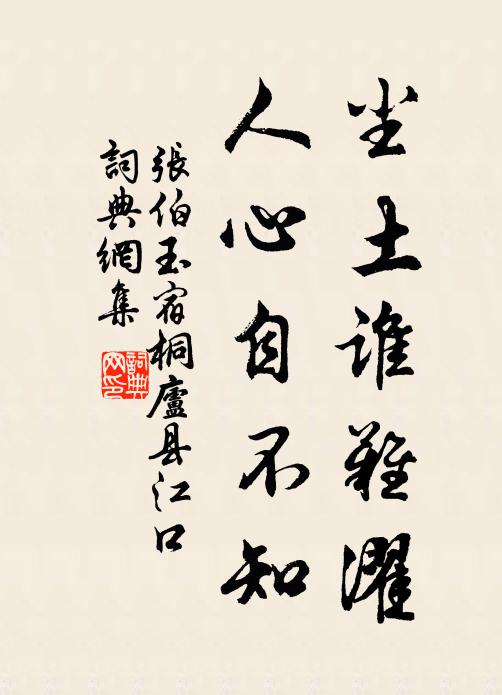 尘土谁難濯
人心自不知
張伯玉宿桐廬县江口
詞典網集
詞典網印